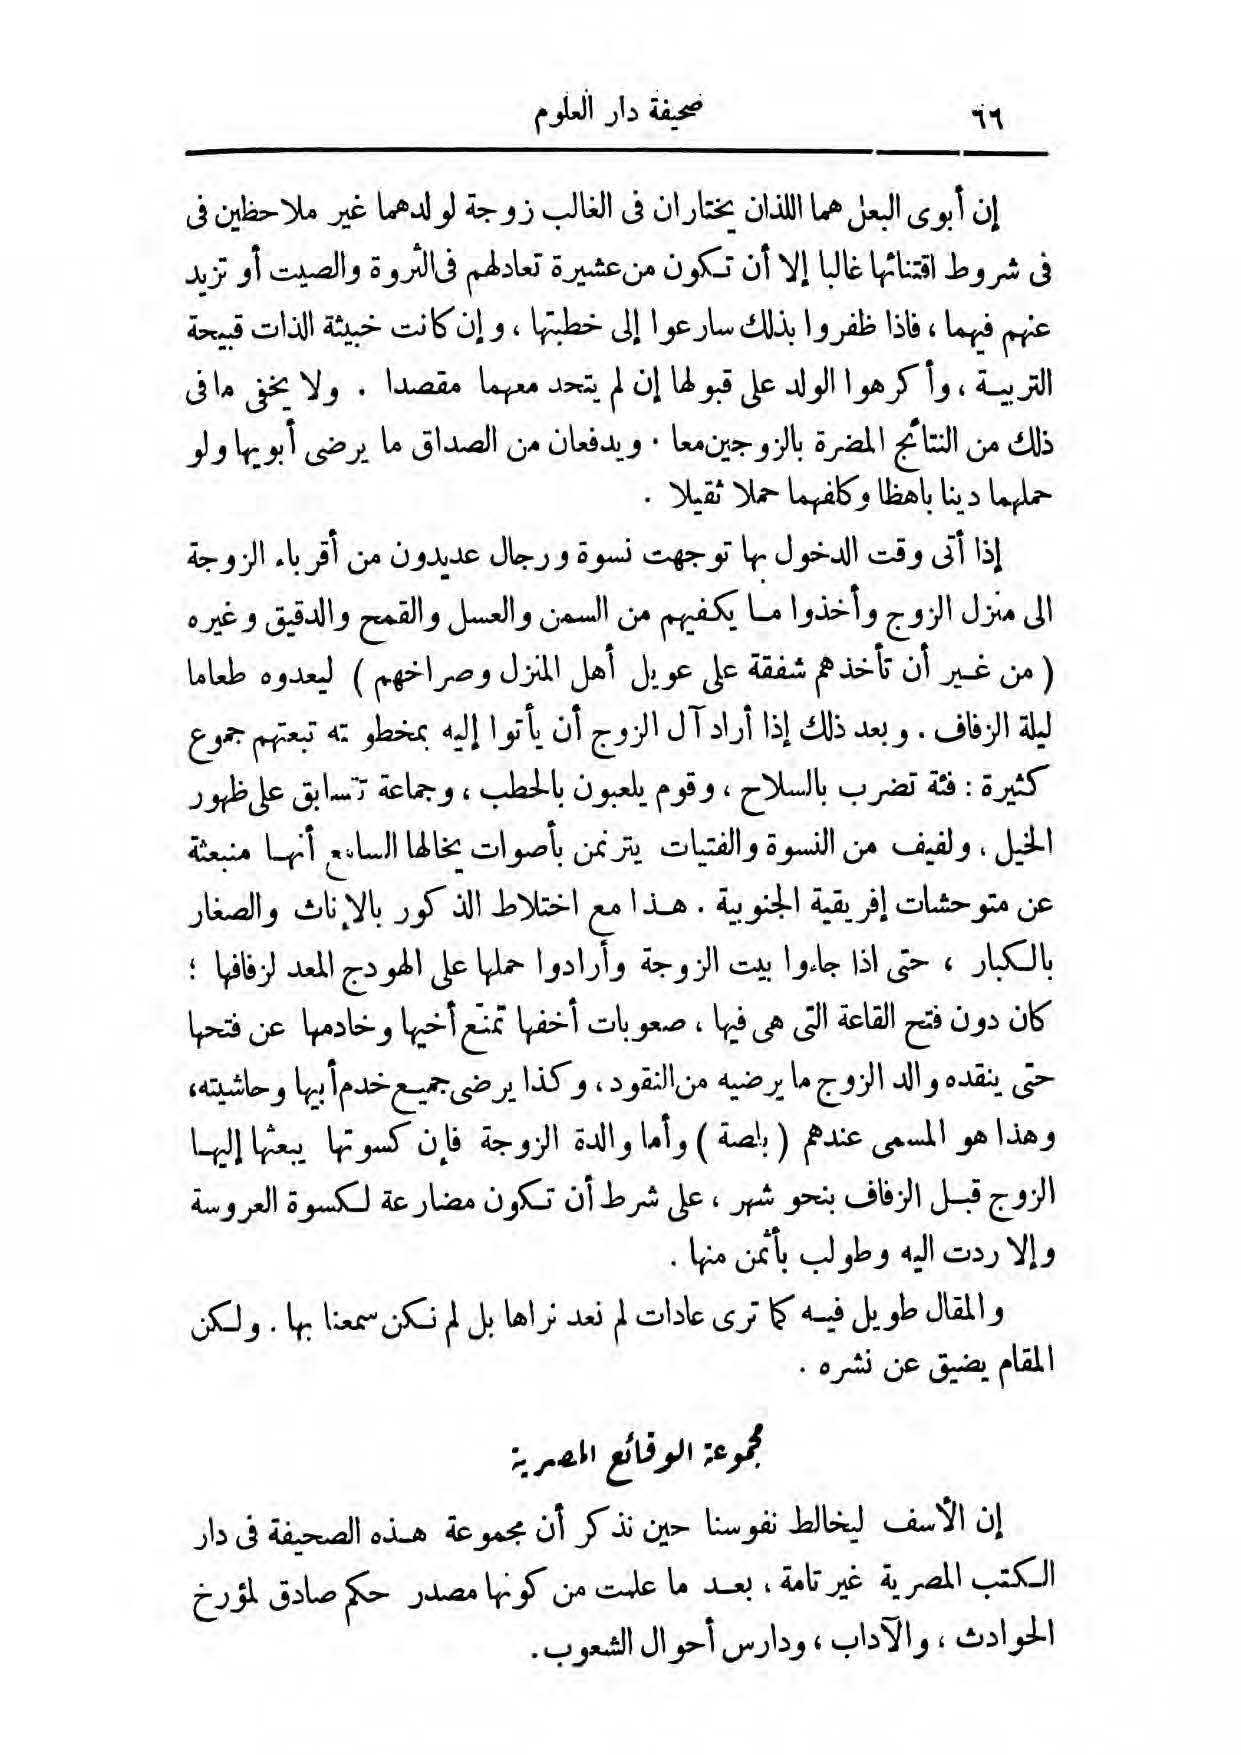 ٦٦
صحيفة دار العلوم
إن أبوى البعل هما اللذان يختاران فى الغالب زوجة لولدهما غير ملاحظين فى
فى شروط اقتنائها غالبا إلا أن تكون من عشيرة تعادلهم فى الثروة والصيت أو تزيد
عنهم فيهما ، فاذا ظفروا بذلك سارعوا إلى خطبتها ، وإن كانت خبيثة الذات قبيحة
التربيـة ، وأكرهوا الولد على قبولها إن لم يتحد معهما مقصدا . ولا يخفى ما فى
ذلك من النتائج المضرة بالزوجين معا . ويدفعان من الصداق ما يرضى أبويها ولو
حملهما دينا باهظا وكلفهما حملا ثقيلا .
إذا أتى وقت الدخول بها توجهت نسوة ورجال عديدون من أقرباء الزوجة
الى منزل الزوج وأخذوا مـا يكفيهم من السمن والعسل والقمح والدقيق وغيره
( من غـير أن تأخذهم شفقة على عويل أهل المنزل وصراخهم ) ليعدوه طعاما
ليلة الزفاف . وبعد ذلك إذا أراد آل الزوج أن يأتوا إليه بمخطوبته تبعتهم جموع
كثيرة : فئة تضرب بالسلاح ، وقوم يلعبون بالحطب ، وجماعة تتسابق على ظهور
الخيل ، ولفيف من النسوة والفتيات يترنمن بأصوات يخالها السامع أنهـا منبعثة
عن متوحشات إفريقية الجنوبية . هـذا مع اختلاط الذكور بالإناث والصغار
بالكبار ، حتى اذا جاءوا بيت الزوجة وأرادوا حملها على الهودج المعد لزفافها ؛
كان دون فتح القاعة التى هى فيها ، صعوبات أخفها تمنّع أخيها وخادمها عن فتحها
حتى ينقده والد الزوج ما يرضيه من النقود ، وكذا يرضى جميـع خدم أبيها وحاشيته،
وهذا هو المسمى عندهم ( بلصة ) وأما والدة الزوجة فإن كسوتها يبعثها إليهـا
الزوج قبـل الزفاف بنحو شهر ، على شرط أن تكون مضارعة لكسوة العروسة
وإلا ردت اليه وطولب بأثمن منها .
والمقال طويل فيـه كما ترى عادات لم نعد نراها بل لم نكن سمعنا بها . ولكن
المقام يضيق عن نشره .
مجموعة الوقائع المصرية
إن الأسف ليخالط نفوسنا حين نذكر أن مجموعة هـذه الصحيفة فى دار
الكتب المصرية غير تامة ، بعـد ما علمت من كونها مصدر حكم صادق لمؤرخ
الحوادث ، والآداب ، ودارس أحوال الشعوب .